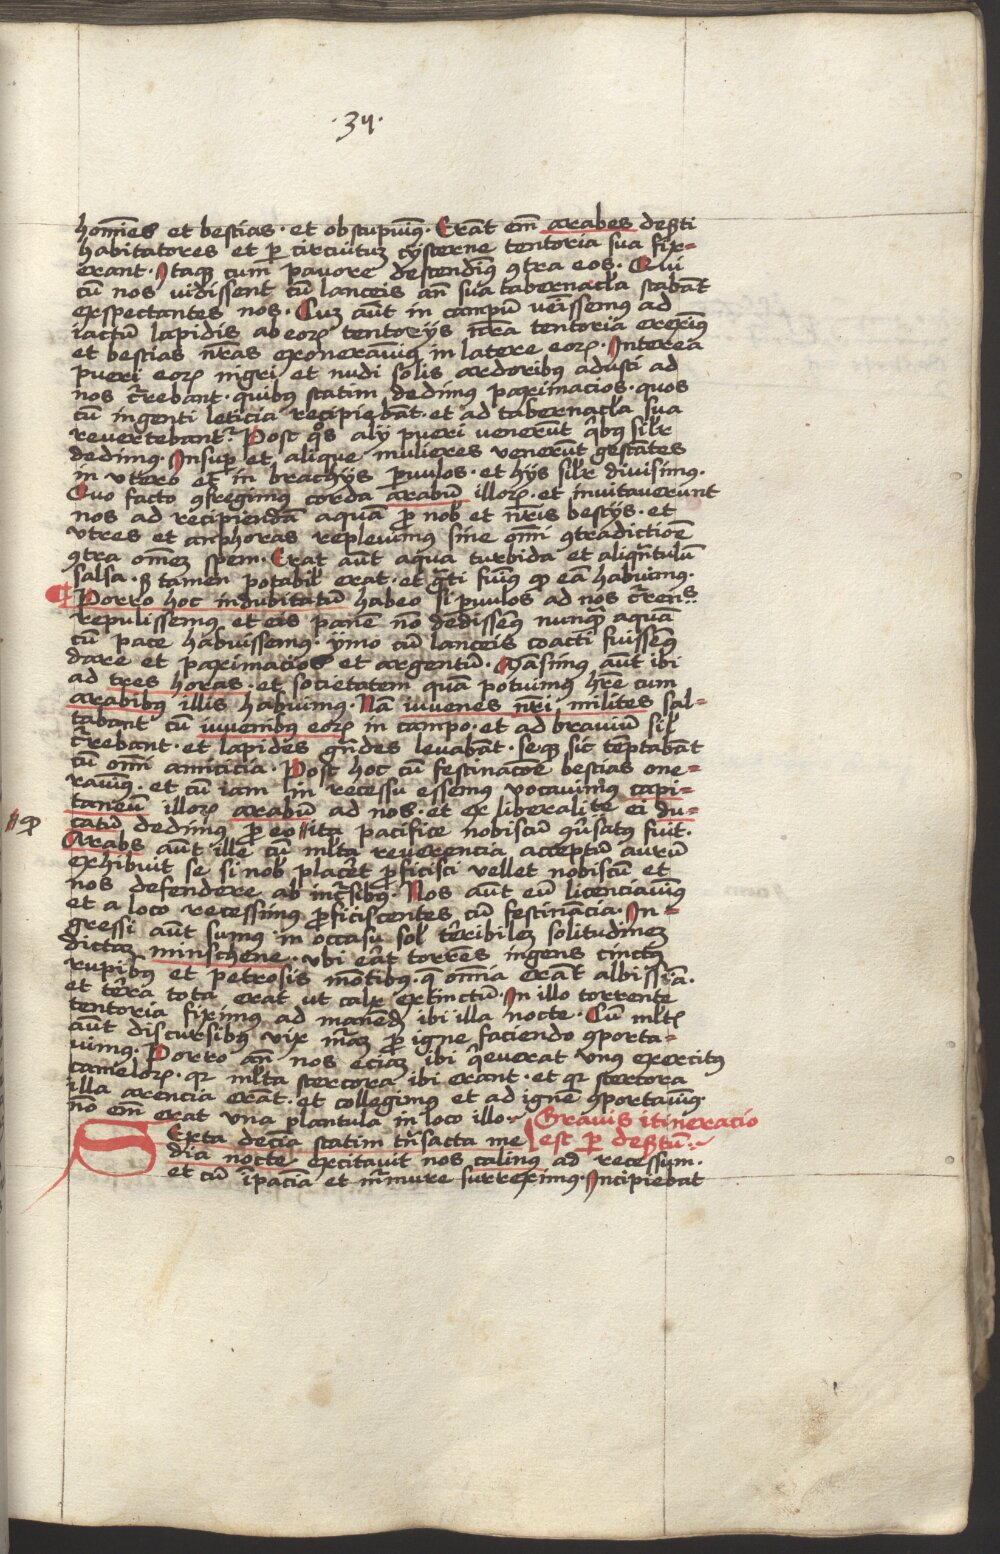 ·34·
hom̄ies et bestias · et obstupuimꝰ · Erāt em̄ arabes deẜti
habitatores et ꝑ circuitū cysterne tentoria sua fix=
erant · Itaqꝫ cum pavore descendimꝰ ꝯtra eos · Qui
cū nos vidissent cū lanceis an̄ sua tabernacl̄a stabāt
exspectantes nos · Cuꝫ aūt in campū venissemus ad
iactum lapidis ab eoꝝ tentorijs nr̄a tentoria ereximꝰ
et bestias nr̄as exonerauimꝰ in latere eoꝝ · Interea
pueri eoꝝ nigri et nudi solis ardoribꝰ adusti ad
nos c̄rebant · quibꝰ statim dedimꝰ paximacios · quos
cū ingenti leticia recipiebāt · et ad tabernacl̄a sua
revertebant᷑ · Post q̊s alij pueri venerūt q̄bꝰ sil̄r
dedimꝰ · Insuꝑ et aliique mulieres venerūt gestātes
in vtero et in brachijs ꝑvulos · et hijs sil̄r divisimꝰ ·
Quo facto ꝯfregimꝰ corda arabū illoꝝ · et invitaverūnt
nos ad recipiendā aquā ꝓ nob̄ et nr̄is bestijs · et
vtres et anphoras replevimꝰ sine om̄i ꝯtradictiōe
ꝯtra om̄eꝫ spem · Erat aūt aqua turbida et aliqn̄tulū
salsa · sꝫ tamen potabil̄ erat · et gr̄ti fuimꝰ ꝙ eā habuimꝰ ·
¶ Porro hoc indubitatū habeo si ꝑvulos ad nos c̄rentes
repulissemꝰ et eis panē nō dedissemꝰ nunqꝫ aquā
cū pace habuissemꝰ · ymo cū lanceis coacti fuissemꝰ
dare et paximacios et argentū · Māsimꝰ aūt ibi
ad tres horas · et societatem quā potuimꝰ hr̄e cum
arabibꝰ illis habuimꝰ · Nā iuvenes nr̄i milites sal=
tabant cū iuvenibꝰ eoꝝ in campo · et ad braviū sil̄
c̄rebant · et lapides gn̄des levabāt · seqꝫ sic tēptabāt
cū om̄i amiticia · Post hoc cū festinacōe bestias one=
rauimꝰ · et cū iam in recessu essemus vocavimꝰ capi=
taneū illoꝝ arabū ad nos · et ex liberalite ei du=
catū dedimꝰ ꝓ eo // ita pacifice nobiscū ꝯūsatꝰ fuit ·
// ꝙ
Arabs aūt ille cū ml̄ta reverencia acceptū aurū
exhibuit se si nob̄ placēt ꝓficisci vellet nobiscū et
nos defendere ab inc̄sibꝰ · Nos aūt eū licenciauimꝰ
et a loco recessimꝰ ꝓficiscentes cū festinācia · In=
gressi aūt sumꝰ in occasu sol̄ t̄ribileꝫ solitudineꝫ
dictaꝫ minschene · vbi erāt torrens ingens cinctꝰ
rupibꝰ et petrosis mōtibꝰ · q̄ om̄ia erāt albissīa ·
et t̄ra tota erat ut calx extinctū · In illo torrente
tentoria fiximꝰ ad manendū ibi illa nocte · Cū ml̄tꝭ
aūt discursibꝰ vix māꝫ ꝓ igne faciendo ꝯporta=
uimꝰ · Porro an̄ nos eciaꝫ ibi q̄everat vnꝰ exercitꝰ
cameloꝝ · qꝛ ml̄ta stercora ibi erant · et qꝛ stercora
illa arencia erāt · et collegimꝰ et ad igne ꝯportavimꝰ
nō em̄ erat vna plantula in loco illo · Gravis itineracio
Sexta decīa statim tn̄sacta me est ꝑ deẜtū ·
dia nocte excitavit nos calinꝰ ad recessum ·
et cū īpaciā et m̄mure surreximꝰ · Incipiebat